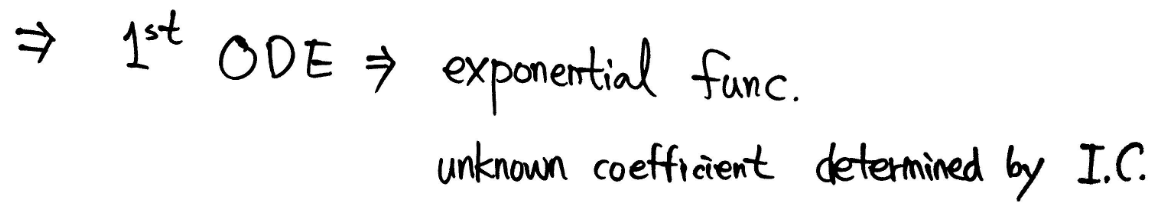 ⇒ 1st ODE ⇒ exponential func.
unknown coefficient determined by I.C.